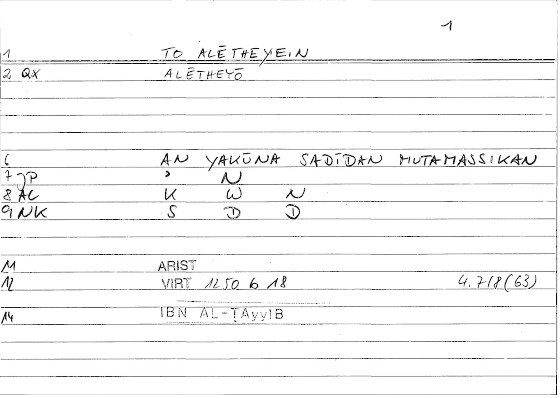 1
1 TO ALĒTHEYEIN
2 QX ALĒTHEYŌ
6 AN YAKŪNA SADĪDAN MUTAMASSIKAN
7 JP ʾ N
8 AC K W N
9 NK S D D
11 ARIST
12 VIRT 1250 b 18 4.7/8(63)
14 IBN AL-ṬAyyIB